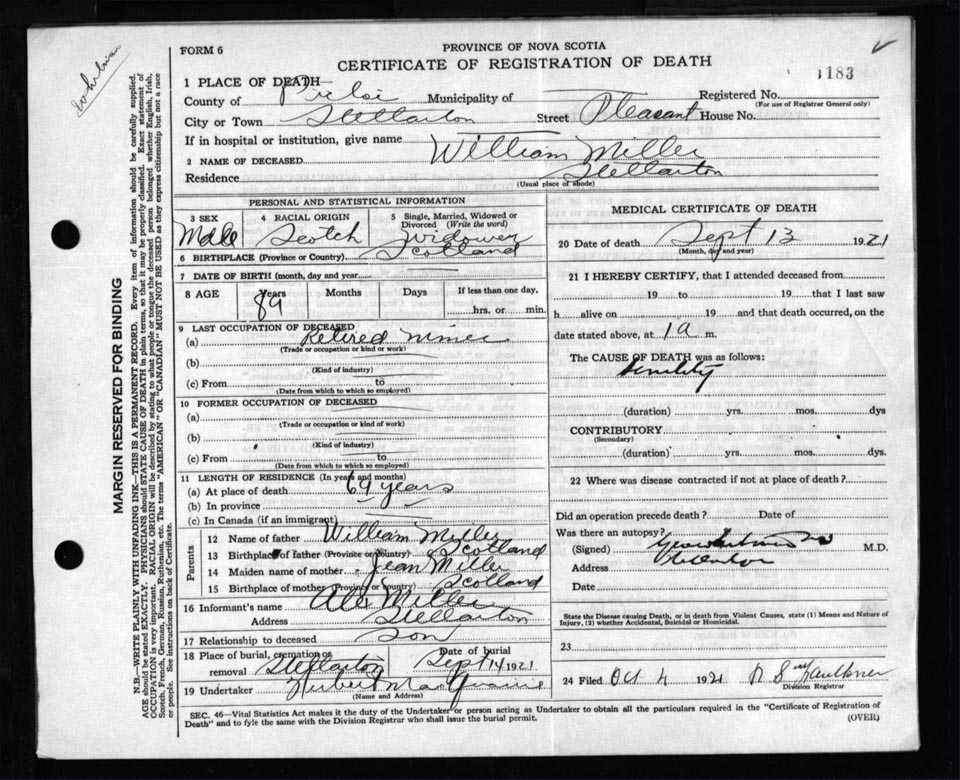 FORM 6
PROVINCE OF NOVA SCOTIA
CERTIFICATE OF REGISTRATION OF DEATH
1183
1 PLACE OF DEATH
County of Pictou Municipality of Registered No.
(For use of Registrar General only)
City or Town Stellarton Street Pleasant House No.
If in hospital or institution, give name
2 NAME OF DECEASED William Miller
Residence Stellarton
(Usual place of abode)
PERSONAL AND STATISTICAL INFORMATION
3 SEX Male
4 RACIAL ORIGIN Scotch
5 Single, Married, Widowed or Divorced (Write the word) Widower
6 BIRTHPLACE (Province or Country) Scotland
7 DATE OF BIRTH (month, day and year)
8 AGE Years 89 Months Days If less than one day, hrs. or min.
9 LAST OCCUPATION OF DECEASED
(a) Retired miner
(Trade or occupation or kind or work)
(b)
(Kind of industry)
(c) From to
(Date from which to which so employed)
10 FORMER OCCUPATION OF DECEASED
(a)
(Trade or occupation or kind of work)
(b)
(Kind of industry)
(c) From to
(Date from which to which so employed)
11 LENGTH OF RESIDENCE (In years and months)
(a) At place of death 69 years
(b) In province
(c) In Canada (if an immigrant)
Parents
12 Name of father William Miller
13 Birthplace of father (Province or country) Scotland
14 Maiden name of mother Jean Miller
15 Birthplace of mother (Province or country) Scotland
16 Informant's name Alex Miller
Address Stellarton
17 Relationship to deceased Son
18 Place of burial, cremation or removal Stellarton Date of burial Sept 14 1921
19 Undertaker
(Name and Address)
MEDICAL CERTIFICATE OF DEATH
20 Date of death Sept 13 1921
(Month, day and year)
21 I HEREBY CERTIFY, that I attended deceased from
19 to 19 that I last saw
h alive on 19 and that death occurred, on
date stated above, at 1 a m.
The CAUSE OF DEATH was as follows:
Senility
(duration) yrs. mos. dys
CONTRIBUTORY
(Secondary)
(duration) yrs. mos. dys.
22 Where was disease contracted if not at place of death?
Did an operation precede death? Date of
Was there an autopsy?
(Signed) M.D.
Address Stellarton
Date
State the Disease causing Death, or in death from Violent Causes, state (1) Means and Nature of
Injury, (2) whether Accidental, Suicidal or Homicidal.
23
24 Filed Oct 4 1921 Faulkner
Division Registrar
SEC. 46—Vital Statistics Act makes it the duty of the Undertaker or person acting as Undertaker to obtain all the particulars required in the "Certificate of Registration of
Death" and to fyle the same with the Division Registrar who shall issue the burial permit.
(OVER)
MARGIN RESERVED FOR BINDING
N.B.—WRITE PLAINLY WITH UNFADING INK—THIS IS A PERMANENT RECORD. Every item of information should be carefully supplied.
AGE should be stated EXACTLY. PHYSICIANS should STATE CAUSE OF DEATH in plain terms, so that it may be properly classified. Exact statement of
OCCUPATION is very important. RACIAL ORIGIN will be described by stating to what people or tongue the deceased person belonged whether English, Irish,
Scotch, French, German, Russian, Ruthenian, etc. The terms "AMERICAN" OR "CANADIAN" MUST NOT BE USED as they express citizenship but not a race
or people. See instructions on back of Certificate.